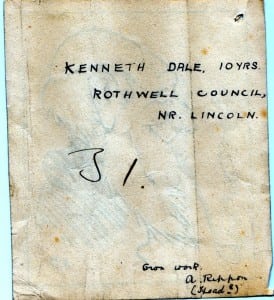 KENNETH DALE, 10YRS.
ROTHWELL COUNCIL,
NR. LINCOLN.
3 1.
Own work.
A. Rippon
(Head